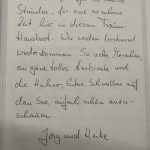 Stunden, für eine schöne
Zeit hier in diesem Traum-
Hausboot. Wir werden bestimmt
wiederkommen. So viele
ein ganz tolles
und die Hühner, Enten, Schwalben auf
dem See, einfach schön anzu-
schauen.
Jörg und Heike